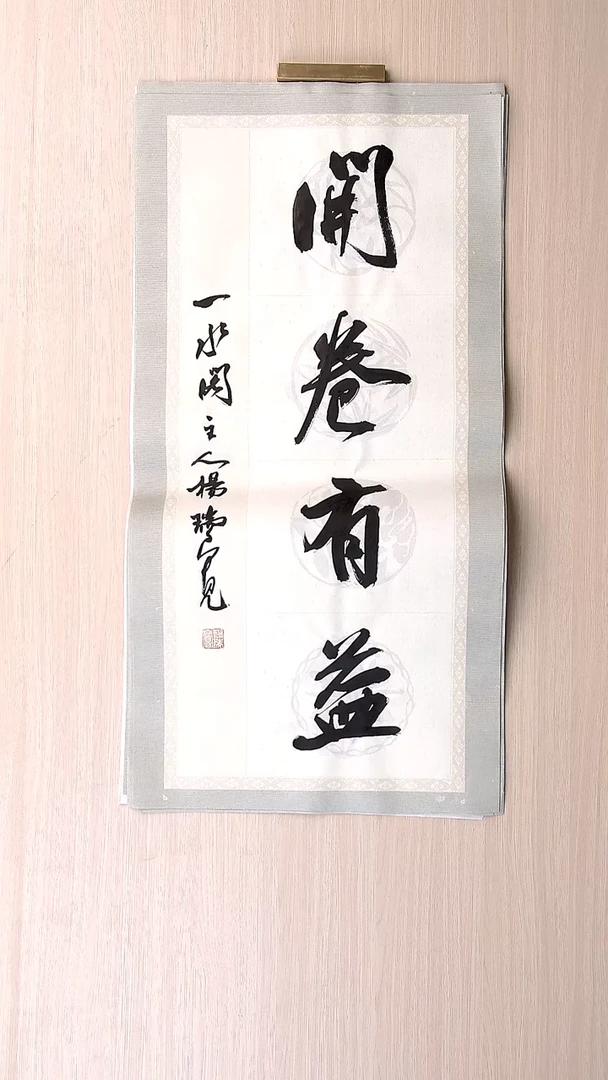 開卷有益
一水閣主人楊瑞寬